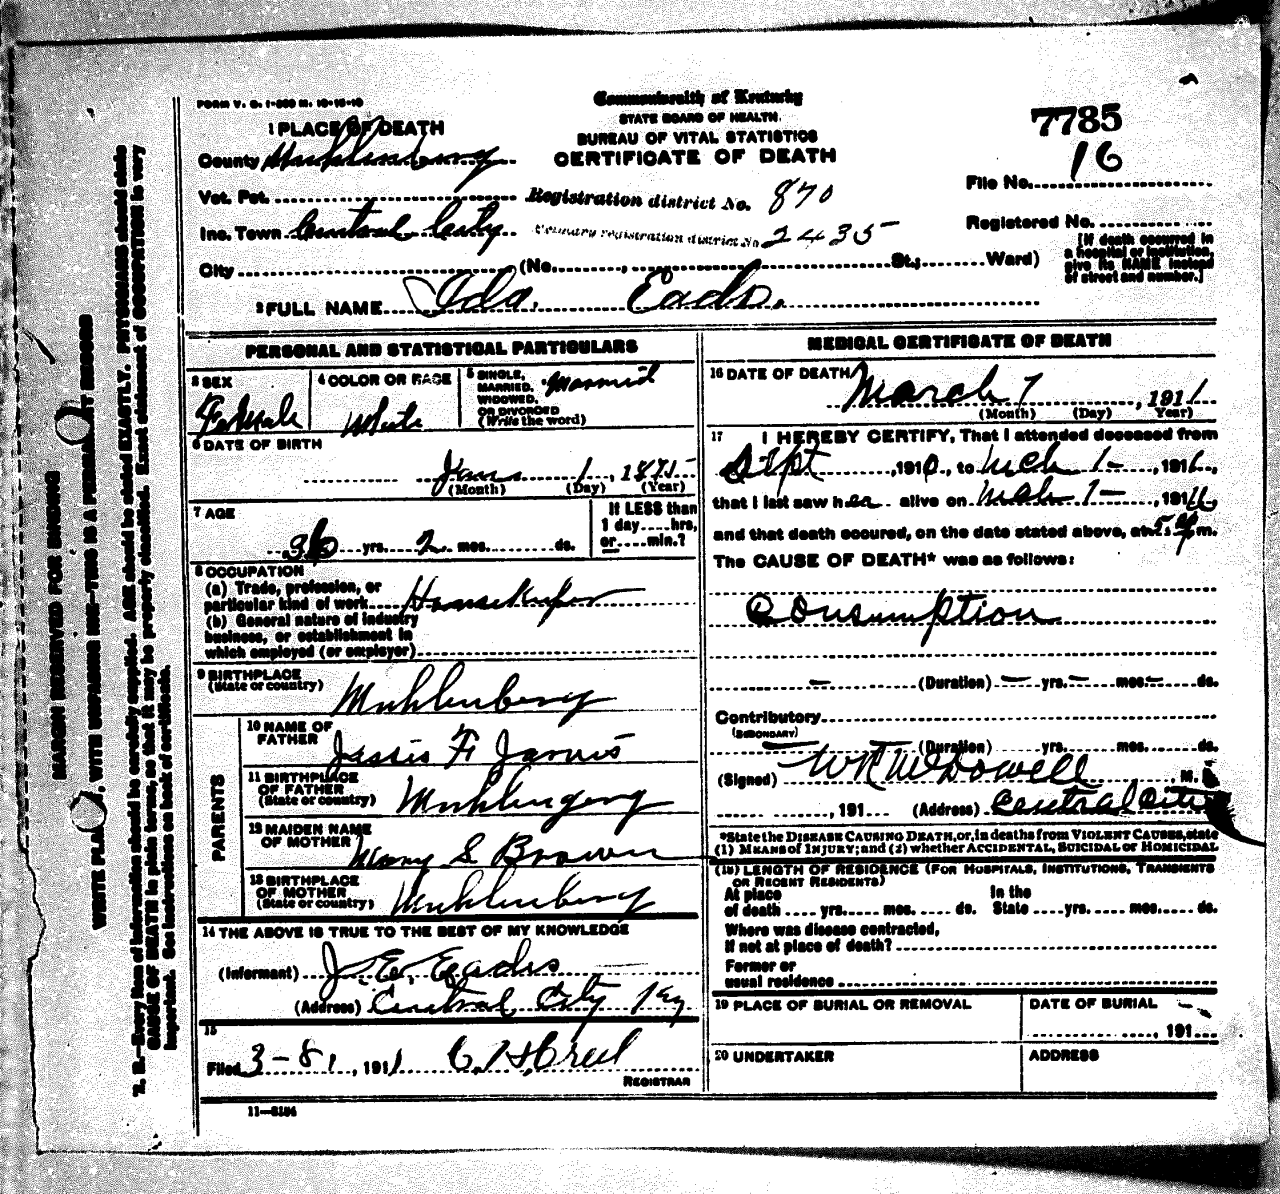 FORM V. S. 1-
Commonwealth of Kentucky
STATE BOARD OF HEALTH.
BUREAU OF VITAL STATISTICS
CERTIFICATE OF DEATH
7785
16
File No.
Registered No.
[If death occurred in a hospital or institution, give its NAME instead of street and number.]
1 PLACE OF DEATH
County Muhlenberg
Vot. Pct.
Registration district No. 870
Inc. Town Central City
Primary registration district No 2435
City (No. , St.; Ward)
2 FULL NAME Ida. Eads.
PERSONAL AND STATISTICAL PARTICULARS
3 SEX
Female
4 COLOR OR RACE
White
5 SINGLE, MARRIED, WIDOWED, OR DIVORCED (Write the word)
Married
6 DATE OF BIRTH
1, 1875
(Month) (Day) (Year)
7 AGE
36 yrs. 2 mos. ds.
If LESS than 1 day hrs, or min.?
8 OCCUPATION
(a) Trade, profession, or
particular kind of work Housekeeper
(b) General nature of industry
business, or establishment in
which employed (or employer)
9 BIRTHPLACE
(State or country) Muhlenberg
PARENTS
10 NAME OF FATHER
F Jarvis
11 BIRTHPLACE OF FATHER
(State or country)
12 MAIDEN NAME OF MOTHER
S Brown
13 BIRTHPLACE OF MOTHER
(State or country) Muhlenberg
14 THE ABOVE IS TRUE TO THE BEST OF MY KNOWLEDGE
(Informant) J. E. Eads
(Address) Central City Ky
15
Filed 3-8, 1911
REGISTRAR
11—
MEDICAL CERTIFICATE OF DEATH
16 DATE OF DEATH
March 7, 1911
(Month) (Day) Year)
17 I HEREBY CERTIFY, That I attended deceased from
Sept, 1910, to Mch , 191 ,
that I last saw her alive on Mch , 191
and that death occured, on the date stated above, at 5. m.
The CAUSE OF DEATH* was as follows:
Consumption
(Duration) yrs. mos. ds.
Contributory
(SECONDARY)
(Duration) yrs. mos. ds.
(Signed) McDowell, M.
, 191 (Address) Central City
*State the DISEASE CAUSING DEATH, or, in deaths from VIOLENT CAUSES, state
(1) MEANS of INJURY; and (2) whether ACCIDENTAL, SUICIDAL or HOMICIDAL
(18) LENGTH OF RESIDENCE (FOR HOSPITALS, INSTITUTIONS, TRANSIENTS
OR RECENT RESIDENTS)
At place of death yrs. mos. ds. In the State yrs. mos. ds.
Where was disease contracted,
If not at place of death?
Former or
usual residence
19 PLACE OF BURIAL OR REMOVAL
DATE OF BURIAL
, 191
20 UNDERTAKER
ADDRESS
MARGIN RESERVED FOR BINDING
WRITE PLA , WITH UNFADING INK—THIS IS A PERMANENT RECORD
N. B.—Every item of information should be carefully supplied. AGE should be stated EXACTLY. PHYSICIANS should state
CAUSE OF DEATH in plain terms, so that it may be properly classified. Exact statement of OCCUPATION is very
important. See instructions on back of certificate.